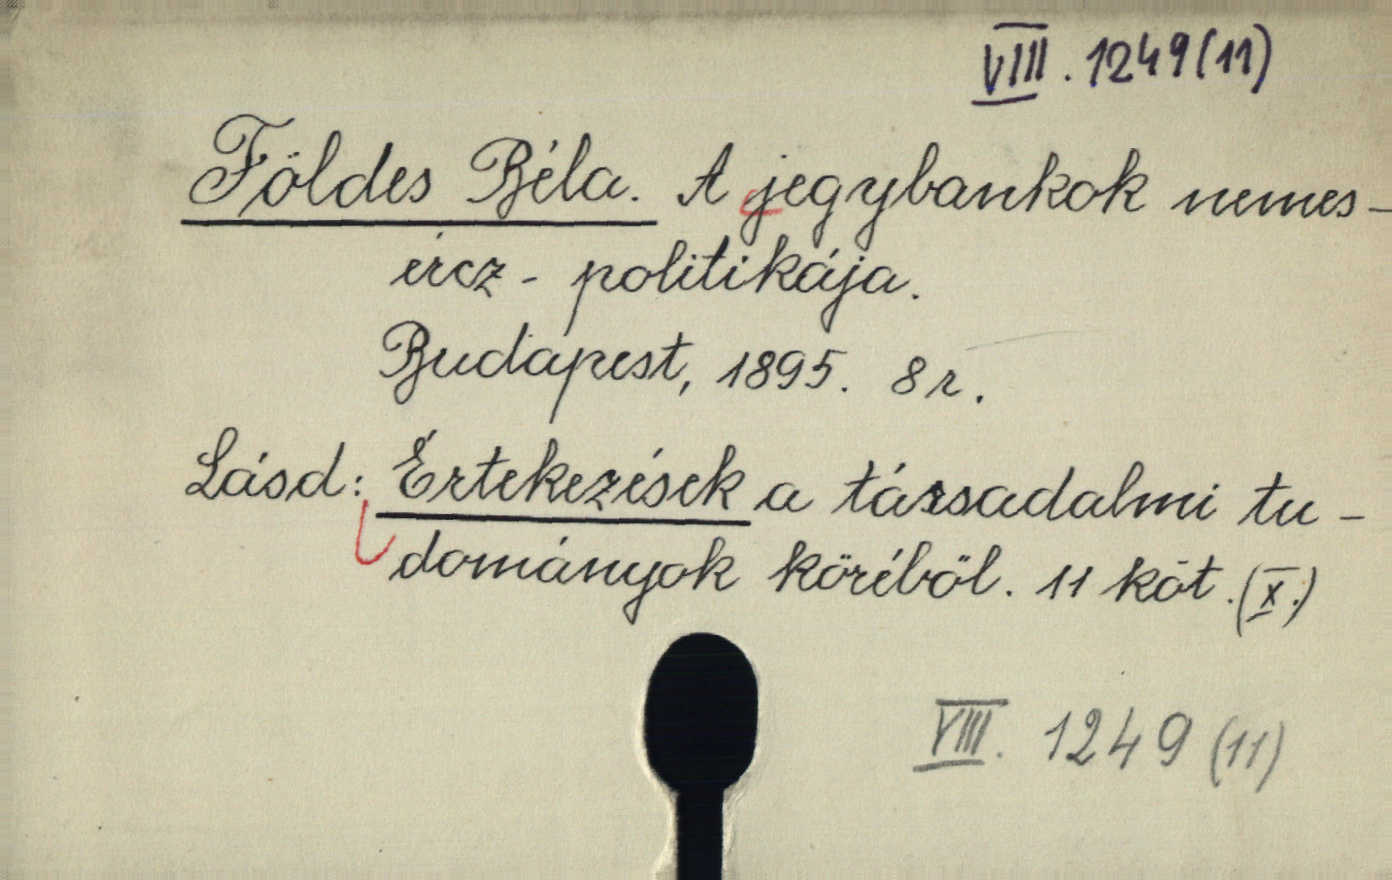 VIII. 1249(11)
Földes Béla. A jegybankok nemes-
ércz-politikája.
Budapest, 1895. 8 r.
Lásd: Értekezések a társadalmi tu-
dományok köréböl. 11 köt. (X.)
VIII. 1249 (11)